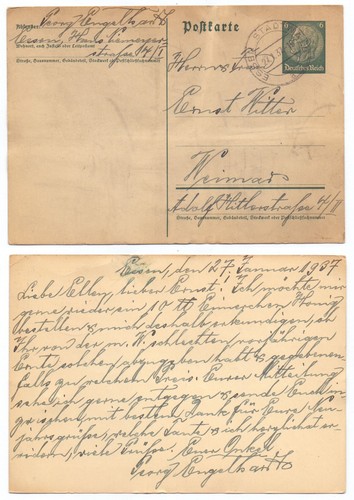 Georg Engelhardt
Essen, Hans Niemeyer-
Wohnort, auch Zustell- oder Leitpostamt
straße 14/II
Straße, Hausnummer, Gebäudeteil, Stockwerk od. Postschließfachnummer
Postkarte
6
6
Deutsches Reich
ESSEN
Herrn u. Frau
Ernst Witter
Weimar
Adolf Hitlerstraße 4/II
Straße, Hausnummer, Gebäudeteil, Stockwerk od. Postschließfachnummer
Essen, den 27. Januar 1937
Liebe Elley, lieber Ernst! Ich möchte mir
gerne wieder ein 10 ℔ Eimerchen Honig
bestellen & mich deshalb erkundigen, ob
Ihr von der m. W. schlechten vorjährigen
Ernte solchen abzugeben habt & gegebenen-
falls zu welchem Preis. Eurer Mitteilung
sehe ich gerne entgegen & sende Euch in-
zwischen mit bestem Dank für Eure Neu-
jahrsgrüße, welche Tante & ich herzlichst er-
widern, viele Grüße. Euer Onkel
Georg Engelhardt